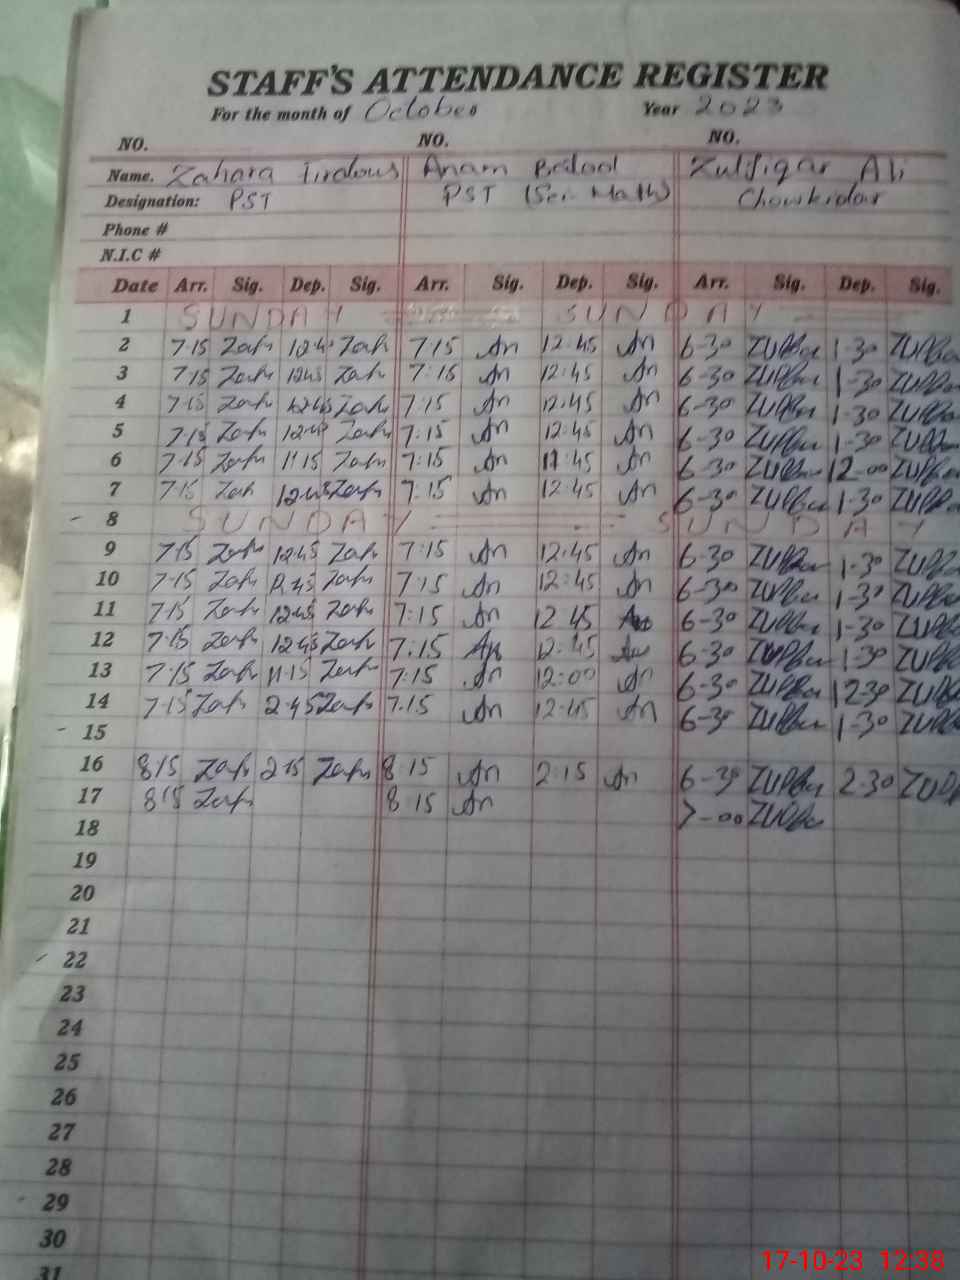 STAFF'S ATTENDANCE REGISTER
For the month of October Year 2023
NO. NO. NO.
Name. Zahara Firdous Anam Batool Zulfiqar Ali
Designation: PST PST (Sci-Math) Chowkidar
Phone #
N.I.C #
Date Arr. Sig. Dep. Sig. Arr. Sig. Dep. Sig. Arr. Sig. Dep. Sig.
1 SUNDAY SUNDAY
2 7·15 Zah 12:45 Zah 7:15 An 12:45 An 6-30 1-30
3 7·15 Zah 12:45 Zah 7:15 An 12:45 An 6-30 1-30
4 7·15 Zah 12:45 Zah 7:15 An 12:45 An 6-30 1-30
5 7·15 Zah 12:45 Zah 7:15 An 12:45 An 6-30 1-30
6 7·15 Zah 11·15 Zah 7:15 An 11:45 An 6-30 12-00
7 7·15 Zah 12:45 Zah 7:15 An 12:45 An 6-30 1-30
8 SUNDAY SUNDAY
9 7·15 Zah 12:45 Zah 7:15 An 12:45 An 6-30 1-30
10 7·15 Zah 12:45 Zah 7:15 An 12:45 An 6-30 1-30
11 7·15 Zah 12:45 Zah 7:15 An 12 45 An 6-30 1-30
12 7·15 Zah 12:45 Zah 7:15 An 12:45 An 6-30 1-30
13 7·15 Zah 11·15 Zah 7:15 An 12:00 An 6-30 12-30
14 7·15 Zah 2·45 Zah 7.15 An 12:45 An 6-30 1-30
15
16 8 15 Zah 2 15 Zah 8 15 An 2:15 An 6-30 2-30
17 8 15 Zah 8 15 An 7-00
18
19
20
21
22
23
24
25
26
27
28
29
30
31
17-10-23 12:38